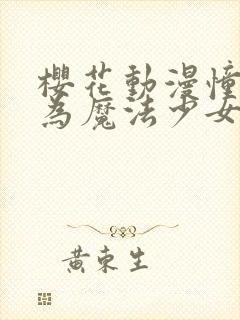 櫻花動漫憧
為魔法少女
黃東生